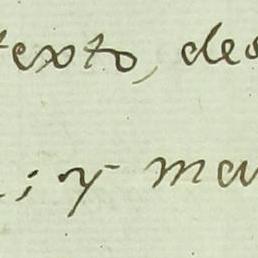 texto, des
; y men